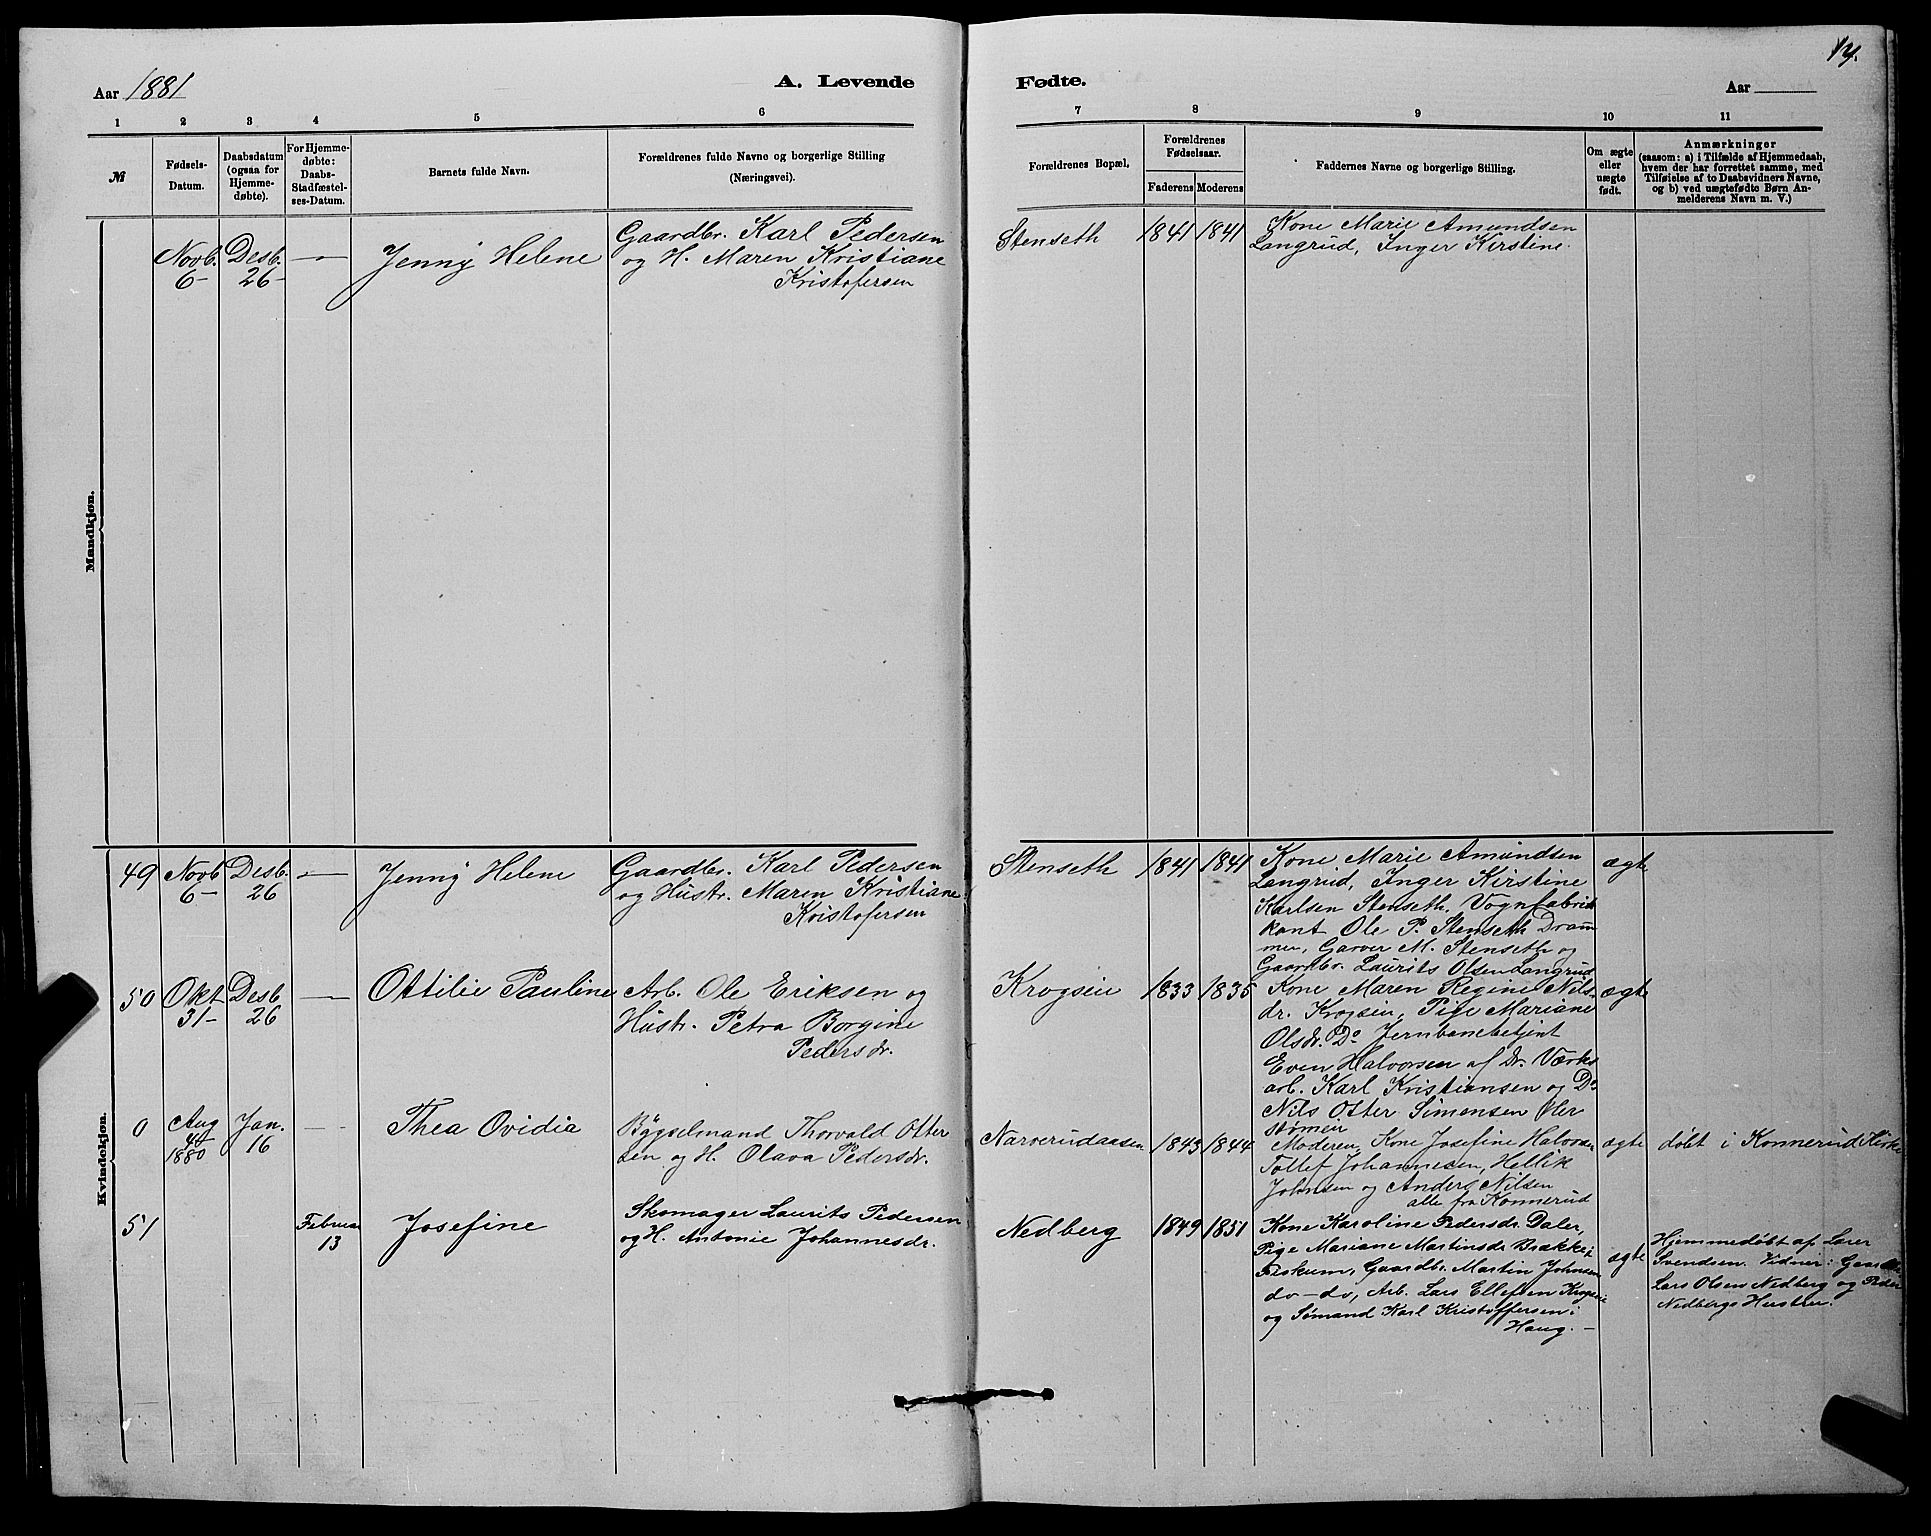 14.
Aar 1881
A. Levende
Fødte.
Aar
1 2 3 4 5 6
7 8 9 10 11
№
Fødsels-
Datum.
Daabsdatum
(ogsaa for
Hjemme-
døbte).
For Hjemme-
døbte:
Daabs-
Stadfæstel-
ses-Datum.
Barnets fulde Navn.
Forældrenes fulde Navne og borgerlige Stilling
(Næringsvei).
Forældrenes Bopæl.
Forældrenes
Fødselsaar.
Faderens Moderens
Faddernes Navne og borgerlige Stilling.
Om ægte
eller
uægte
født.
Anmærkninger
(saasom: a) i Tilfælde af Hjemmedaab,
hvem der har forrettet samme, med
Tilføielse af to Daabsvidners Navne,
og b) ved uægtefødte Børn An-
melderens Navn m. V.)
Mandkjøn.
Novb.
6-
Desb.
26-
—
Jenny Helene
Gaardbr. Karl Pedersen
og H. Maren Kristiane
Kristofersen
Stenseth
1841 1841
Kone Marie Amundsen
Langrud, Inger Kirstine
Kvindekjøn.
49
Novb
6-
Desb.
26
—
Jenny Helene
Gaardbr. Karl Pedersen
og Hustr. Maren Kristiane
Kristofersen
Stenseth
1841 1841
Kone Marie Amundsen
Langrud, Inger Kirstine
Karlsen Stenseth. Vognfabrik
kant Ole P. Stenseth Dram
men, Garver M. Stenseth og
Gaardbr. Laurits Olsen Langrud
ægte
50
Okt
31-
Desb.
26
—
Ottilie Pauline
Arb. Ole Eriksen og
Hustr. Petra Borgine
Pedersdr.
Krogsein
1833 1835
Kone Maren Regine Nils-
dr. Krogsein, Pige Mariane
Olsdr. Do Jernbanebetjent
Even Halvorsen af Dr. Værks
arb. Karl Kristiansen og Do
Nils Otter Simensen Øler
strømen
ægte
0
Aug
1880
Jan.
16
—
Thea Ovidia
Bygselmand Thorvald Otter
sen og H. Olava Pedersdr.
Narverudaasen
1843 1844
Moderen, Kone Josefine Halvorsen
Tollef Johannesen, Hellik
Johnsen og Anders Nilsen
alle fra Konnerud
ægte
døbt i Konnerud Kirke
51
Februar
13
Josefine
Skomager Laurits Pedersen
og H. Antonie Johannesdr.
Nedberg
1849 1851
Kone Karoline Pedersdr. Daler,
Pige Mariane Martinsdr Brække i
Fiskum, Gaardbr. Martin Johnsen
do-do, Arb. Lars Ellefsen Krogsein
og Sømand Karl Kristoffersen i
Haug. —
ægte
Hjemmedøbt af Lærer
Svendsen. Vidner: Gaardbr
Lars Olsen Nedberg og Peder
Nedbergs Hustru.